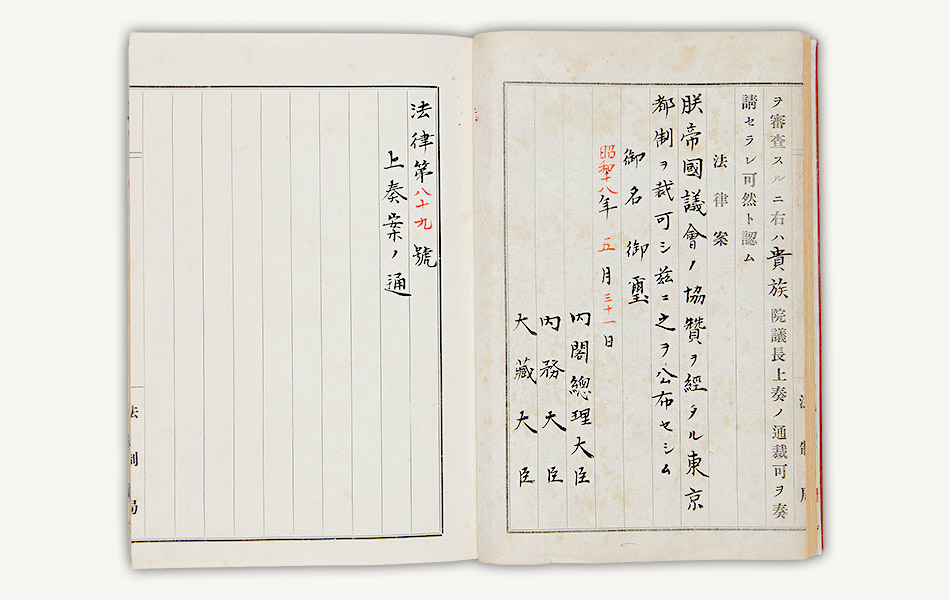 ヲ審査スルニ右ハ貴族院議長上奏ノ通裁可ヲ奏
請セラレ可然ト認ム
法律案
朕帝國議會ノ協贊ヲ經タル東京
都制ヲ裁可シ茲ニ之ヲ公布セシム
御名御璽
昭和十八年五月三十一日
内閣總理大臣
内務大臣
大藏大臣
法律第八十九號
上奏案ノ通
法制局